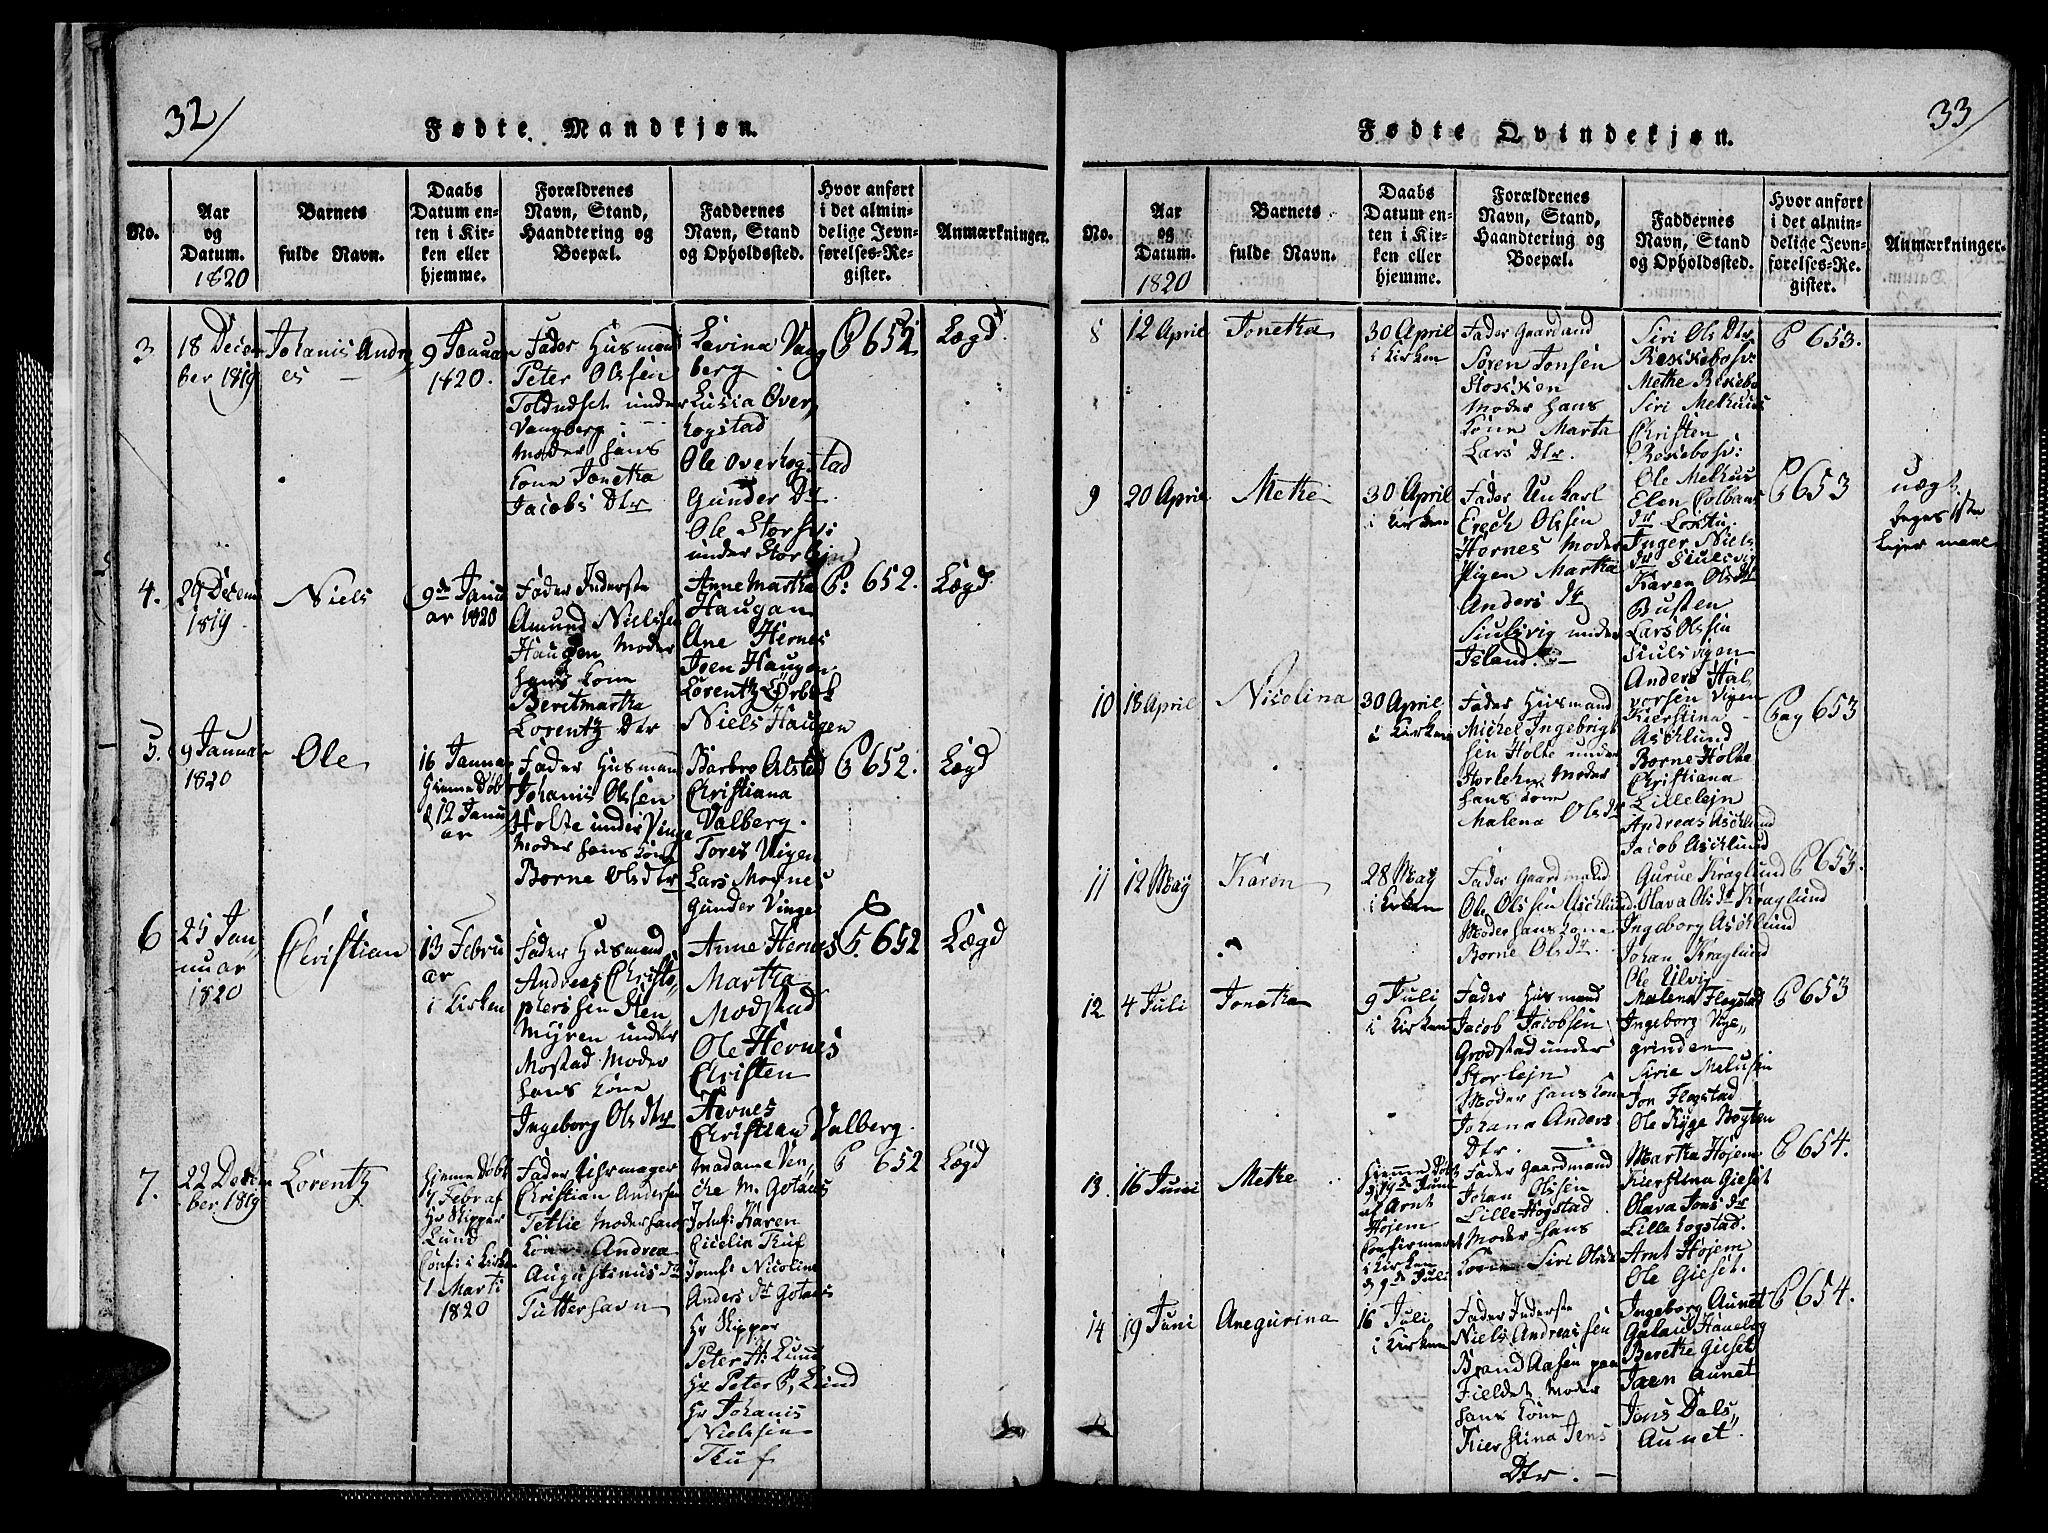 32/
Fødte Mandkjøn.
No.
Aar og Datum. 1820
Barnets fulde Navn.
Daabs Datum enten i Kirken eller hjemme.
Forældrenes Navn, Stand, Haandtering og Boepæl.
Faddernes Navn, Stand og Opholdssted.
Hvor anført i det almindelige Jevnførelses-Register.
Anmærkninger.
3
18 Decem
ber 1819
Johanis Andre
es
9 Januar
1820.
Fader Husmand
Peter Olssen
under
Vangberg
Moder hans
Kone Jonetha
Jacobs Dtr
Lavina Vang
berg
Lusia Over
hogstad
Ole Overhogstad
Gunder Do
Ole Storhv:
under Storlejn
P 652
Lægd
4.
29 Decem
1819.
Niels
9de Janu
ar 1820
Fader Inderste
Amund Nielssen
Haugen Moder
hans Kone
Beritmartha
Lorentz Dtr
Anne Martha
Haugan
Ane Hernes
Joen Haugan
Lorentz Ørbek
Niels Haugen
P: 652.
Lægd
5.
9 Januar
1820
Ole
16 Januar
Hjemme Døbt
d 12 Janu
ar
Fader Husmand
Johanis Olssen
Holte under Vinge
Moder hans Kone
Borne Olsdtr
Barbro Alstad
Christiana
Valberg.
Tores Vigen
Lars Mornes
Gunder Vinge
P 652.
Lægd
6
25 Jan
nuar
1820
Christian
13 Febru
ar
i Kirken
Fader Husmand
Andreas Christo
phersen Sten
Myren under
Mostad Moder
hans Kone
Ingeborg Olsdtr
Anne Hernes
Martha
Modstad
Ole Hernes
Christen
Hernes
Christian Valberg.
P. 652
Lægd
7.
22 Decem
ber 1819
Lorentz
Hjemme Døbt
7 Febr af
Hr Skipper
Lund
Conf: i Kirken
1 Marti
1820
Fader Uhrmager
Christian Andersen
Tetlie Moder hans
Kone Andrea
Augustinus dtr
Tutterhavn
Madame Ven
che M. Gotaas
Jomf: Karen
Cicelia Tuf
Jomf: Nicoline
Anders dtr Gotaas
Hr Skipper
Peter H: Lund
Hr Peter P, Lund
Hr Johanis
Nielssen
Tuf
P 652
Lægd
33/
Fødte Qvindekjøn.
No.
Aar og Datum. 1820
Barnets fulde Navn.
Daabs Datum enten i Kirken eller hjemme.
Forældrenes Navn, Stand, Haandtering og Boepæl.
Faddernes Navn, Stand og Opholdssted.
Hvor anført i det almindelige Jevnførelses-Register.
Anmærkninger.
8
12 April
Jonetha
30 April
i Kirken
Fader Gaardmand
Søren Jonsen
Stokken
Moder hans
Kone Marta
Lars Dtr.
Siri Ols Dtr
Rekkebosv:
Methe Rekkebo
Siri Melhuus
Christen
Rekkebosv:
Ole Melhuus
P 653.
9
20 April
Methe
30 April
i Kirken
Fader Unkarl
Erech Olssen
Hernes Moder
Pigen Martha
Anders dtr
Siulsvig under
Island.
Elen Colbans
dtr Loktu
Inger Niels
dtr Siulsvig
Karen Olsdtr
Busten
Lars Olssen
Siulsvigen
Anders Hal
vorsen Vigen
P 653
uægt
begges 1ste
Lejer maal
10
18 April
Nicolina
30 April
i Kirken
Fader Husmand
Michel Ingebrigt
sen Holte under
Storlehn Moder
hans Kone
Malena Olsdtr
Kierstina
Aschlund
Borne Holte
Christiana
Lillelejn
Andreas Aschlund
Jacob Aschlund
Pag 653
11
12 May
Karen
28 May
i Kirken
Fader Gaardmand
Ole Olssen Aschlund
Moder hans Kone
Borne Ols dtr
Gurue Kraglund
Olava Ols dtr Kraglund
Ingeborg Aschlund
Johan Kraglund
Ole Ulvig
P 653.
12
4 Juli
Jonetha
9 Juli
i Kirken
Fader Husmand
Jacob Jacobsen
Grodstad under
Storlejn
Moder hans Kone
Johana Anders
Dtr.
Malena Flogstad
Ingeborg Vige
grinden
Sirie Melusin
Jon Flogstad
Ole Ryge Bogten
P 653
13.
16 Juni
Methe
Hjemme Døbt
d 19de Juni
af Arnt
Hojem
Confirmeret
i Kirken
d 9de Juli
Fader Gaardmand
Johan Olssen
Lille Hogstad
Moder hans
Kone Siri Olsdtr
Martha Hojem
Kierstina Gieset
Olava Jons dtr
Lille Hogstad.
Arnt Hojem
Ole Gieset.
P 654.
14
19 Juni
Anegurina
16 Juli
i Kirken
Fader Inderste
Niels Andreassen
Brand Aasen paa
Fieldet Moder
hans Kone
Kierstina Jens
Dtr.
Ingeborg Aunet
Beretha Gieset
Joen Aunet
Jons Dals
Aunet.
P 654.